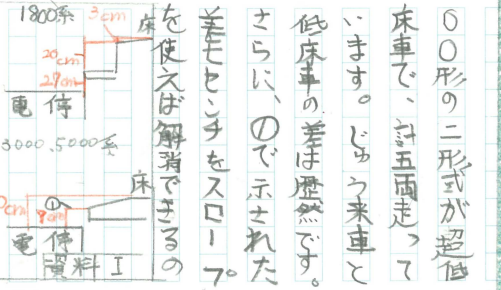 〇〇形の二形式が超低
床車で、計五両走って
います。じゅう来車と
低床車の差は歴然です。
さらに、①で示された
差七センチをスロープ
を使えば解消できるの
1800系
3cm
床
20cm
27cm
電停
3000、5000系
床
①
電停
資料I